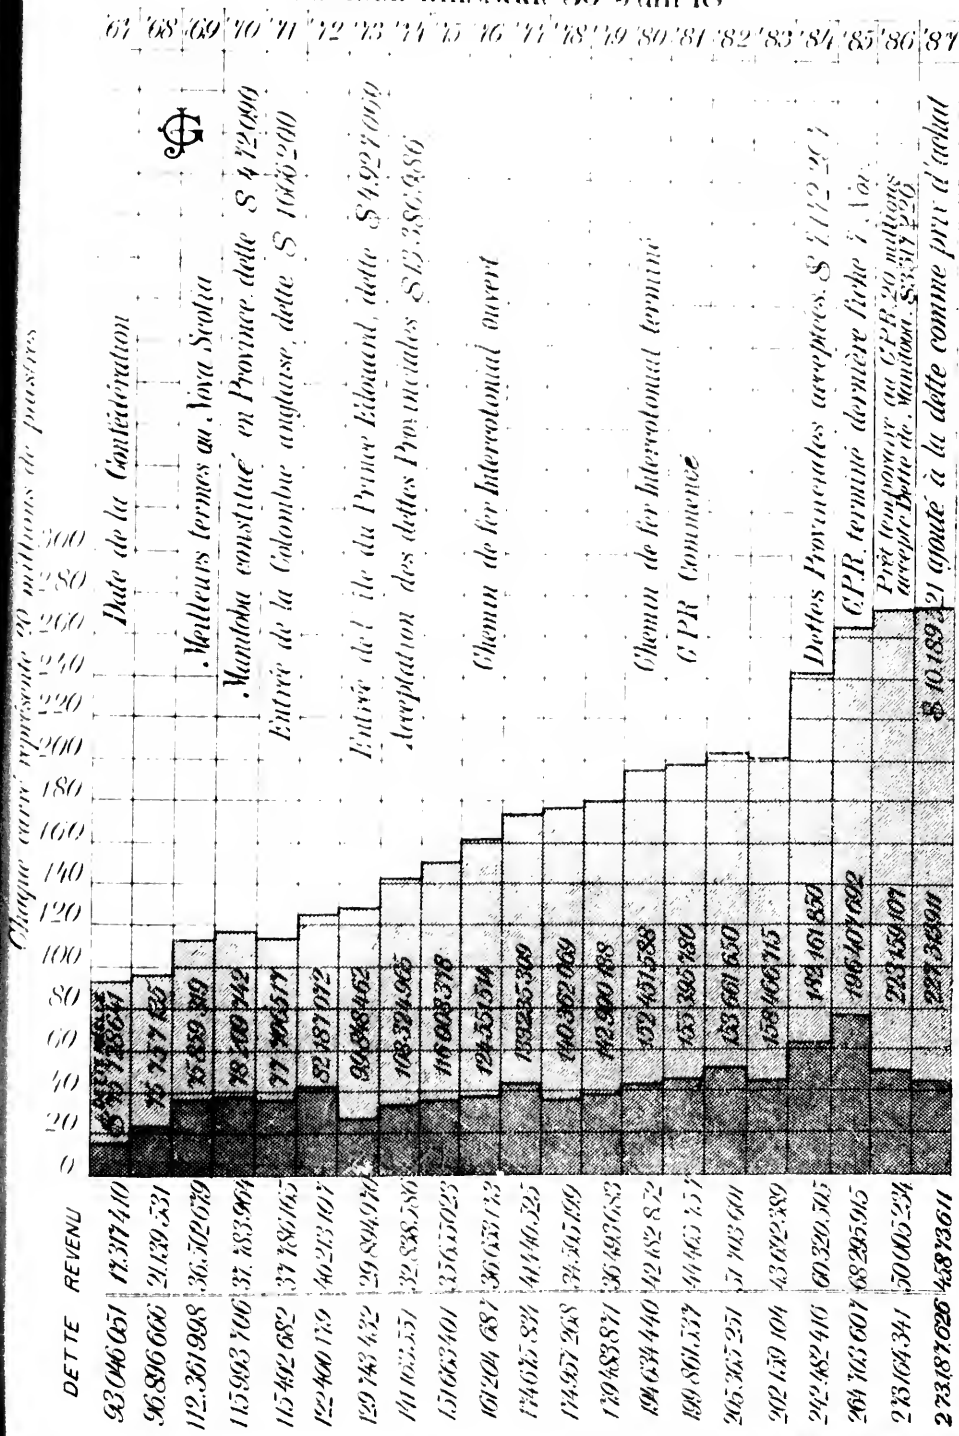 '67 '68 '69 '70 '71 '72 '73 '74 '75 '76 '77 '78 '79 '80 '81 '82 '83 '84 '85 '86 '87
Chaque carré représente 20 millions de piastres
300
280
260
240
220
200
180
160
140
120
100
80
60
40
20
0
Date de la Confédération
Meilleurs termes au Nova Scotia
Manitoba constitué en Province, dette $ 472 090
Entrée de la Colombie anglaise, dette $ 1 666 200
Entrée de l'ile du Prince Edouard, dette $ 4.927 060
Acceptation des dettes Provinciales $ 13.386.986
Chemin de fer Intercolonial ouvert
Chemin de fer Intercolonial terminé
C P R Commencé
Dettes Provinciales acceptées. $ 7.172 297
C P R. terminé dernière fiche 7 Nov
Prêt temporaire au C P R. 20 millions
accepte Dette de Manitoba.
$ 10.189 521 ajouté à la dette comme prix d'achat
$ 75 728 641
75 757 135
75 859 319
78 209 742
77 706 517
82 187 072
99.848 462
108 324 965
116 008 378
124 551 514
133 235 309
140 362 069
142 990 188
152 451 588
155 395 780
153 661 650
158 466 715
182 161 850
196 407 692
223 159 107
227 313 911
DETTE REVENU
93 046 051 17.317 410
96.896 666 21.139 531
112.361 998 36.502 679
115 993 706 37.783 964
115 492 682 37 786 165
122 400 179 40 213 107
129 743 432 29.894 970
141 163 551 32.838.586
151 663 401 35 655 023
161 204 687 36 653 173
174 675 834 41.440.525
174.957 268 34.595 199
179 483 871 36 493 683
194 634 440 42 182 852
199 861 537 44 465 757
205 365 251 51 703 601
202 159 104 43 692 389
242 482 416 60 320 565
264 703 607 68 295 915
273 164 341 50 005 234
273.187 626 45 873 611